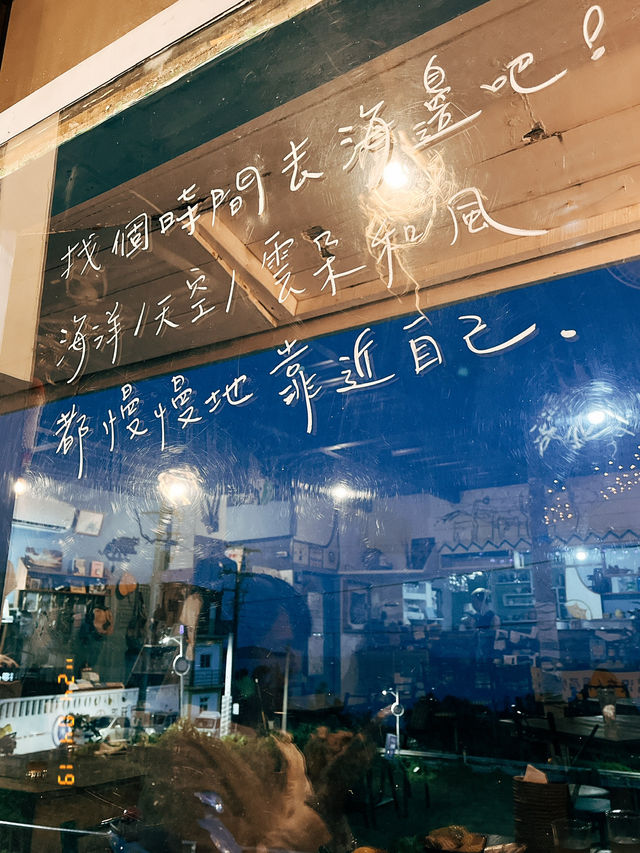 找個時間去海邊吧！
海洋/天空/雲朵和風
都慢慢地靠近自己.